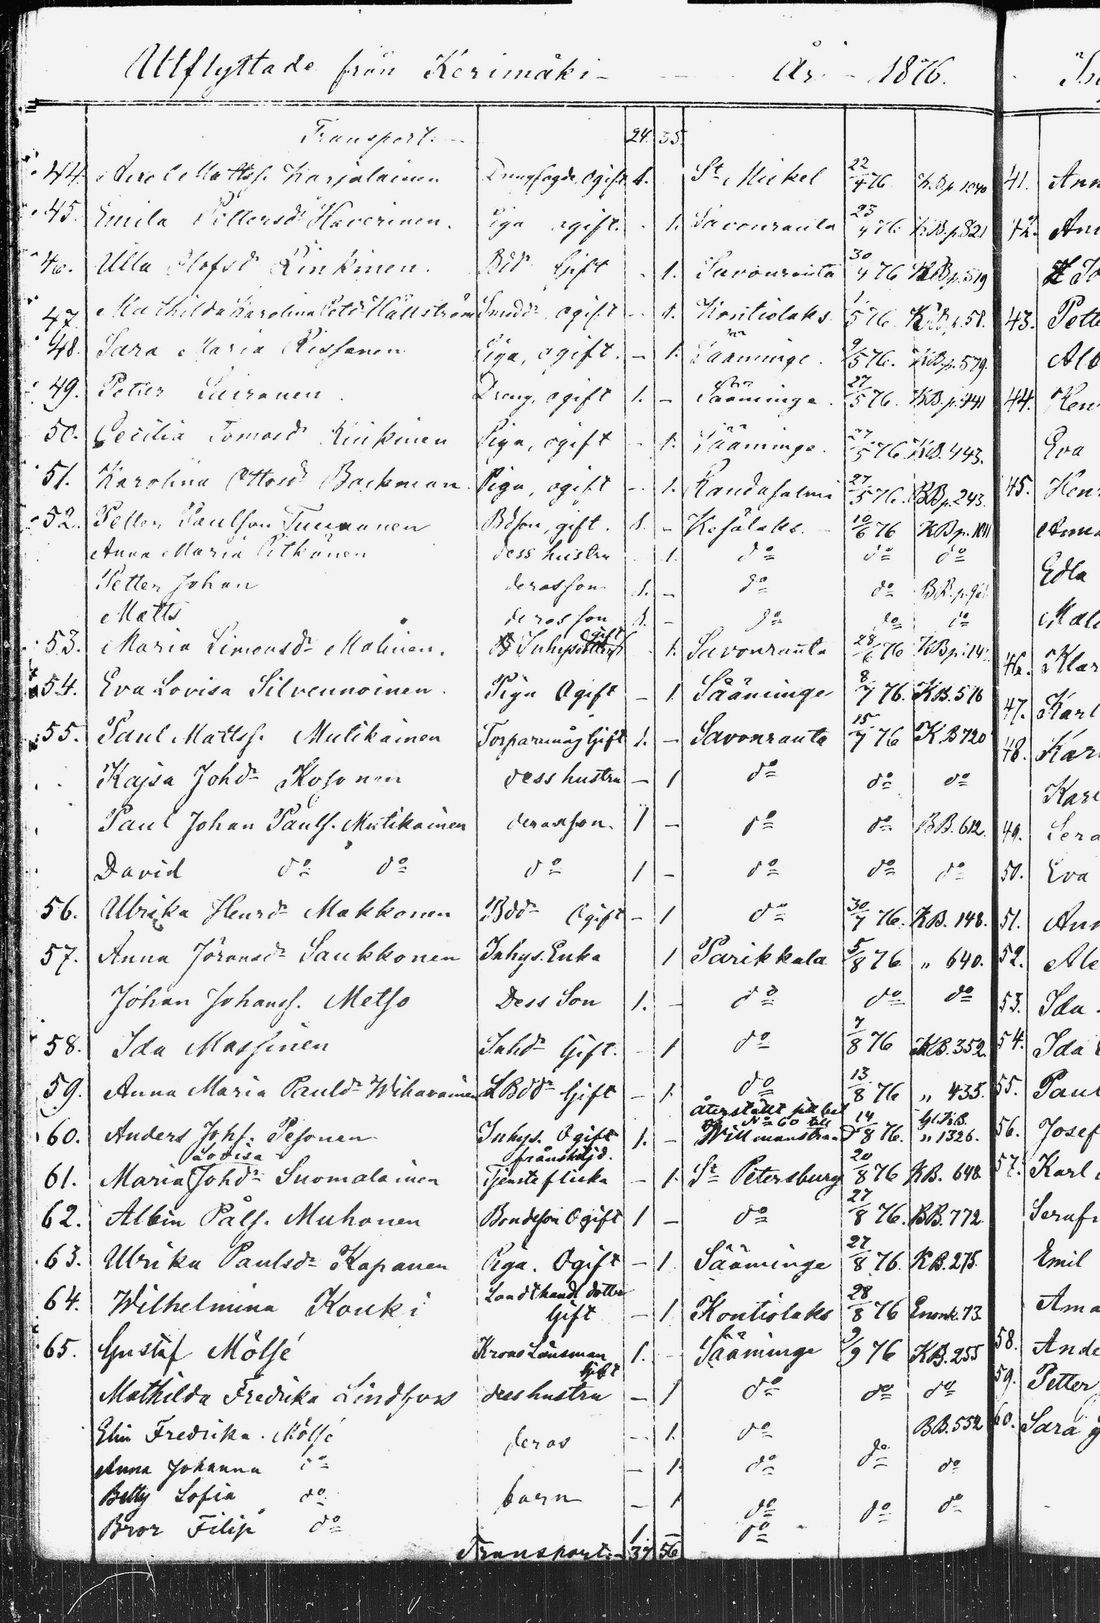 Utflyttade från Kerimäki — År — 1876.
Transport. — 24. 35
44. Matts. Karjalainen ogift 1. St Michel 22/4 76 K.B.p. 1040
45. Emila Pettersdr Haverinen. Piga ogift. - 1. Savonranta 23/4 76. K.B.p. 821
46. Ulla Olofsdr Linkinen. Bdr Gift - 1. Savonranta 30/4 76 K.B.p. 519
47. Mathilda Karolina Hällström Smeddr ogift - 1. Kontiolaks 1/5 76. K.B.p. 58.
48. Sara Maria Rissanen Piga, ogift. - 1. Sääminge. 9/5 76. K.B.p. 579.
49. Petter Dreng, ogift 1. - Sääminge. 27/5 76. K.B.p. 441
50. Cecilia Tomasdr Kinkinen Piga, ogift - 1. Sääminge. 27/5 76 K.B. 443.
51. Karolina Ottosdr Backman. Piga, ogift - 1. Randasalmi 27/5 76. B.B.p. 243.
52. Petter Paulson Tuunanen Bdson, gift. 1. - Kesälaks. 10/6 76 K.B.p.
Anna Maria Pitkänen dess hustru 1. do do do
Petter Johan deras son 1. - do do
Matts deras son 1. - do do do
53. Maria Simonsdr Malinen. Ogift 1. Savonranta 28/6 76 K.B.p. 14
54. Eva Lovisa Silvennoinen. Piga Ogift - 1 Sääminge 8/7 76. K.B. 516
55. Paul Matts. Mutikainen Gift 1. - Savonranta 15/7 76 K.B. 720
Kajsa Johdr Kosonen dess hustru - 1 do do do
Paul Johan Pauls. Mutikainen deras son. 1 - do do B.B. 612.
David do do do 1 - do do do
56. Ulrika Henrdr Makkonen Bddr Ogift - 1 do 30/7 76. K.B. 148.
57. Anna Jöransdr Saukkonen Inhys. Enka 1 Parikkala 5/8 76 „ 640.
Johan Johans. Metso Dess Son 1. - do do do
58. Ida Massinen Inhdr Gift. - 1 do 7/8 76 K.B. 352.
59. Anna Maria Pauldr Wihavainen LBddr Gift - 1. do 13/8 76 „ 435.
återstädt
60. Anders Johs. Pesonen Inhys. Ogift 1. - Willmanstrand 14/8 76. „ 1326.
Lovisa frånskild.
61. Maria Johdr Suomalainen Tjensteflicka - 1. St Petersburg 20/8 76 K.B. 648
62. Albin Påls. Muhonen Bondeson Ogift 1 - do 27/8 76. B.B. 772
63. Ulrika Paulsdr Kapanen Piga. Ogift - 1. Sääminge 27/8 76. K.B. 275.
64. Wilhelmina Kouki Landthandl. dotter
Gift - 1. Kontiolaks 28/8 76 73.
65. Gustaf Mölsé Krono Länsman
Gift 1. - Sääminge 9/9 76 K.B. 255
Mathilda Fredrika Lindfors dess hustru - 1 do do do
Elin Fredrika. Mölsé deras - 1. do B.B. 552
Anna Johanna do - 1. do do do
Betty Sofia do barn - 1 do do do
Bror Filip do 1. - do
Transport. — 37. 56
41. Ann
42. Ann
43. Pette
Alb
44. Hen
Eva
45. Hen
Anna
Edla
46. Klar
47. Karl
48. Kar
49.
50. Eva
51. Ann
52. Ale
53. Ida
54. Ida
55. Paul
56. Josef
57. Karl
Serafi
Emil
Ama
58. Ande
59. Petter
60. Sara